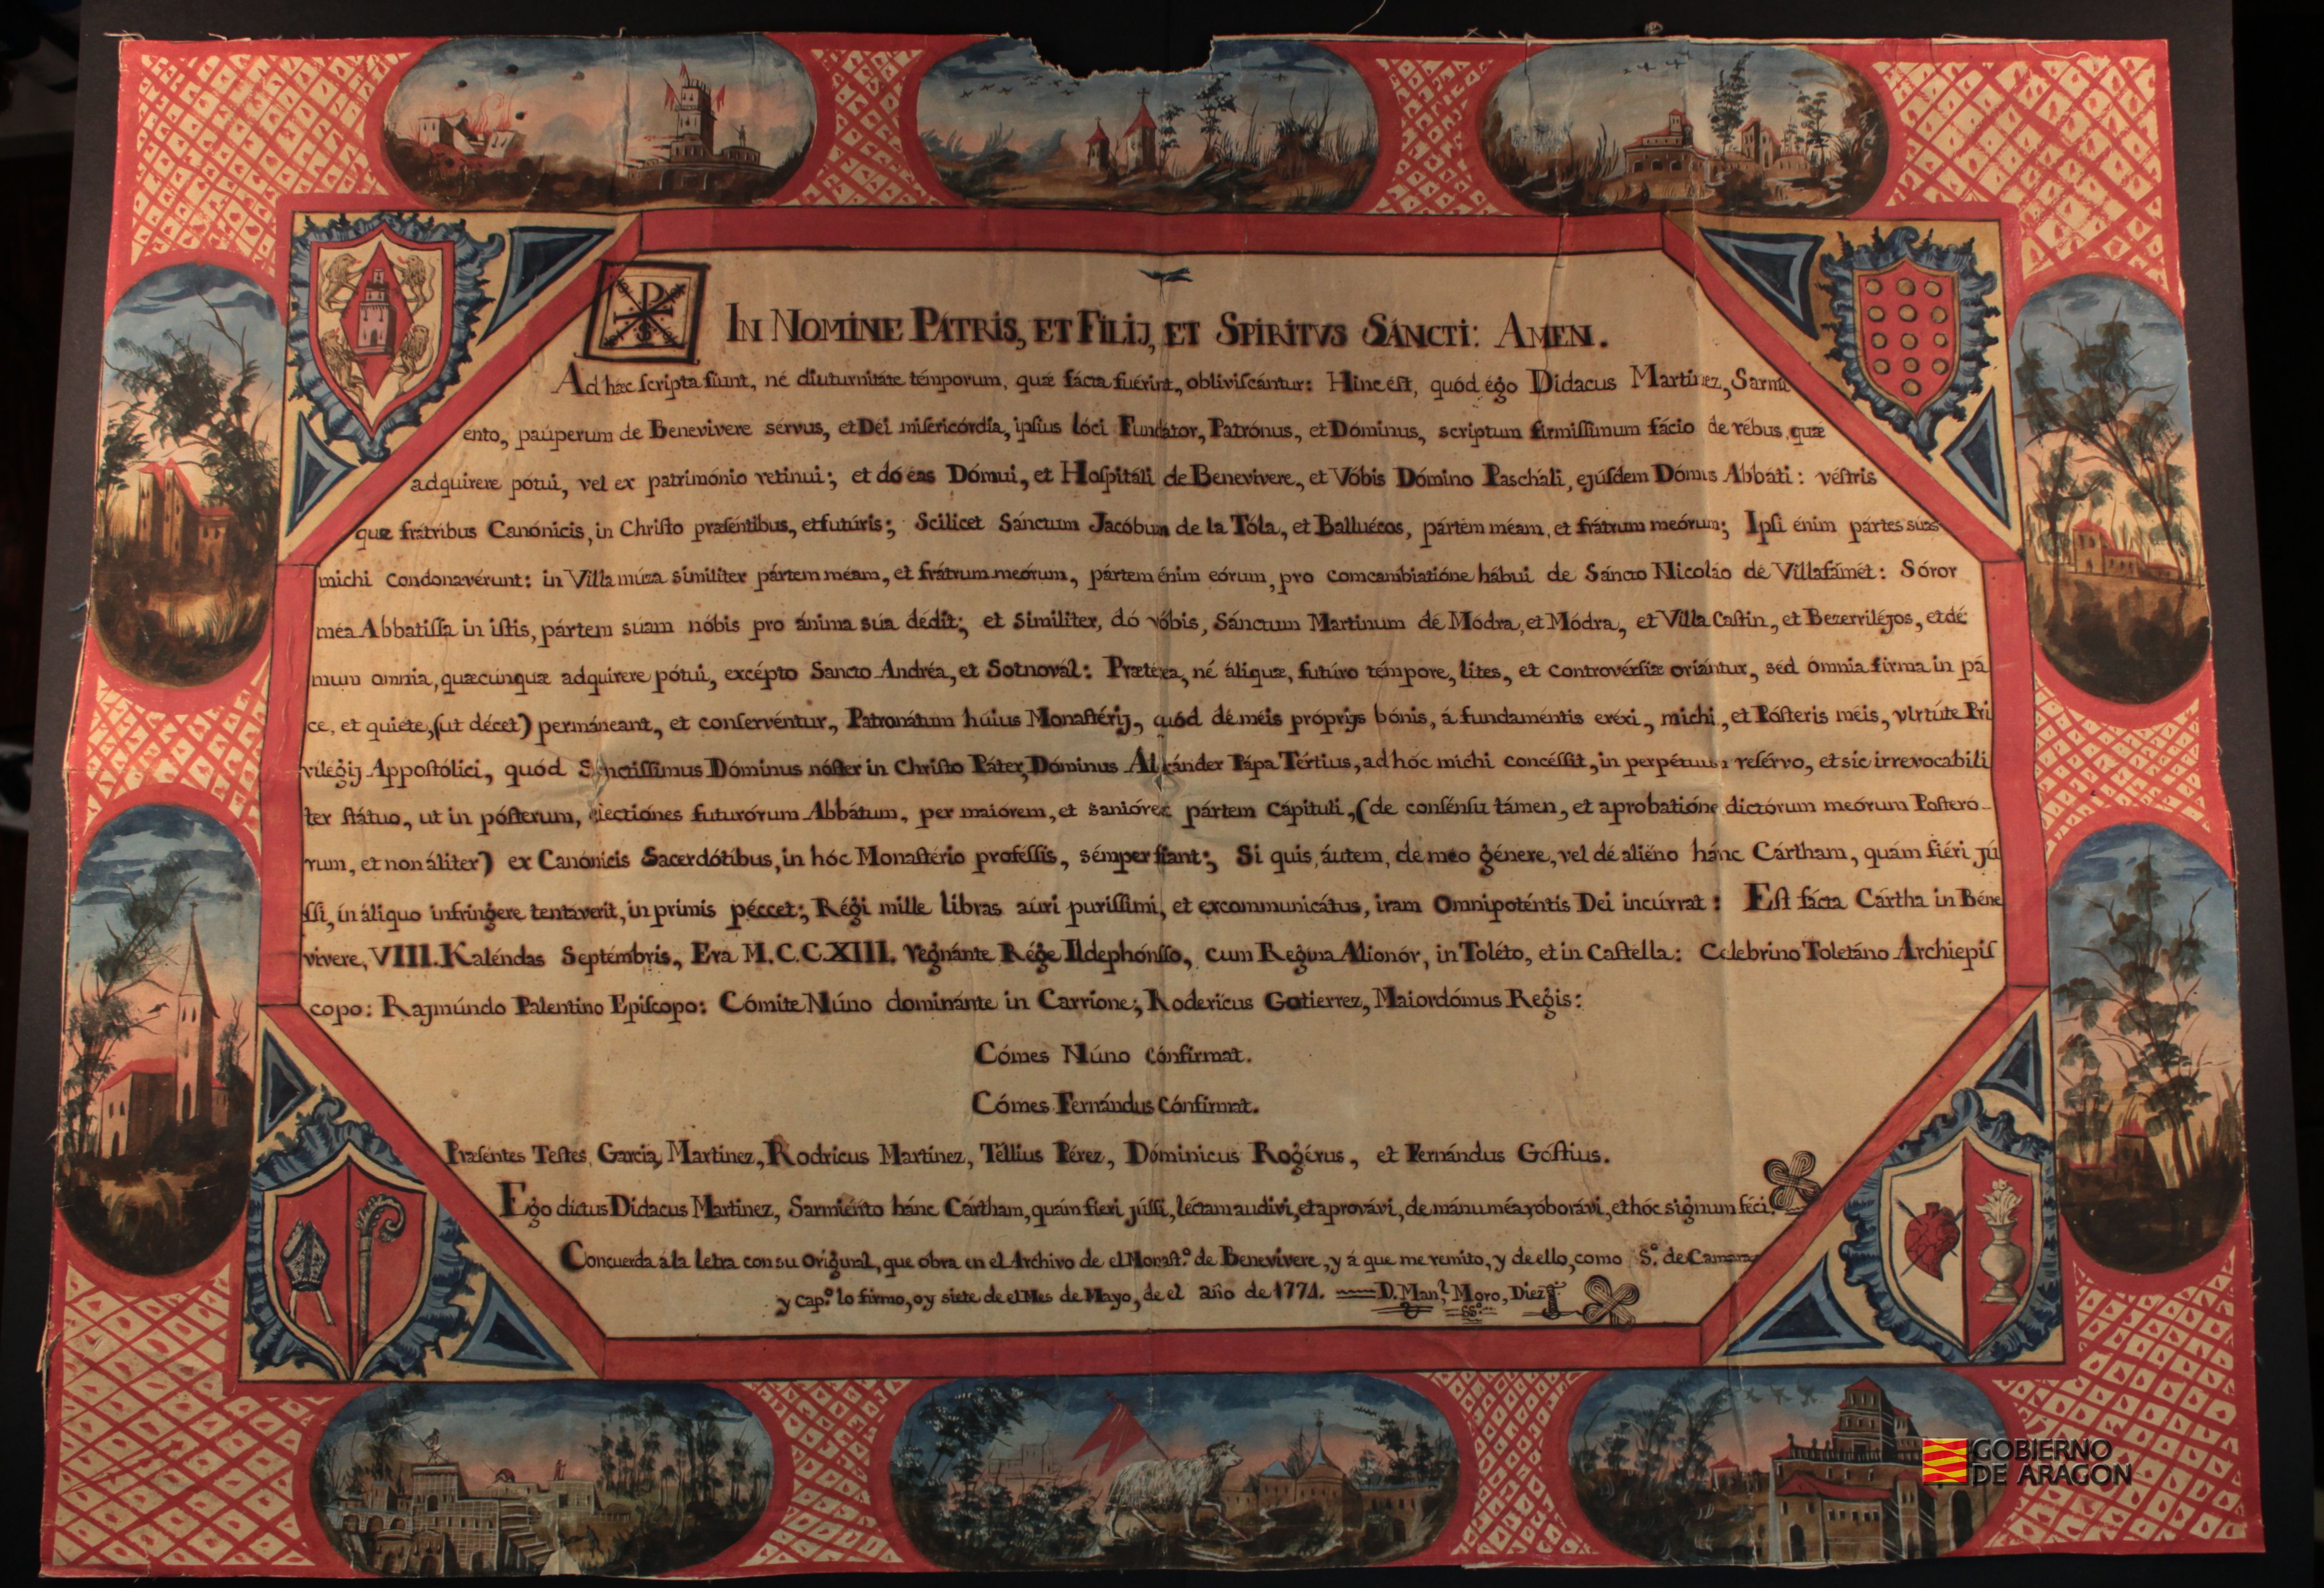 In Nomine Pátris, et Filij, et Spiritvs Sáncti: Amen.
Ad hæc scripta fiunt, né diuturnitáte témporum, quæ fácta fuérint, obliviscántur: Hinc est, quód égo Didacus Martinez, Sarmi
ento, paúperum de Benevivere sérvus, et Déi misericórdia, ipsius lóci Fundátor, Patrónus, et Dóminus, scriptum firmissimum fácio de rébus, quæ
adquirere pótui, vel ex património retinui; et dó eas Dómui, et Hospitáli de Benevivere, et Vóbis Dómino Pascháli, ejúsdem Dómus Abbáti: véstris
quæ frátribus Canónicis, in Christo præséntibus, et futúris; Scilicet Sánctum Jacóbum de la Tóla, et Balluécos, pártem méam, et frátrum meórum; Ipsi énim pártes súas
michi condonavérunt: in Villa múza similiter pártem méam, et frátrum meórum, pártem énim eórum, pro comcambiatióne hábui de Sáncto Nicoláo dé Villafámét: Sóror
méa Abbatissa in istis, pártem súam nóbis pro ánima súa dédit; et similiter, dó vóbis, Sánctum Martinum dé Módra, et Módra, et Villa Castin, et Bezerriléjos, et dé
mum omnia, quæcúnquæ adquirere pótui, excépto Sancto Andréa, et Sotnovál: Prætérea, né áliquæ, futúro témpore, lites, et controvérsiæ oriántur, séd ómnia firma in pá
ce, et quiéte, (ut décet) permáneant, et conservéntur, Patronátum húius Monastérij, quód dé méis próprijs bónis, á fundaméntis eréxi, michi, et Pósteris méis, virtúte Pri
vilégij Appostólici, quód Sanctissimus Dóminus nóster in Christo Páter, Dóminus Alexánder Pápa Tértius, ad hóc michi concéssit, in perpétuum resérvo, et sic irrevocabili
ter státuo, ut in pósterum, electiónes futurórum Abbátum, per maiórem, et saniórem pártem Capituli, (de consénsu támen, et aprobatióne dictórum meórum Posteró-
rum, et non áliter) ex Canónicis Sacerdótibus, in hóc Monastério proféssis, sémper fiant; Si quis, áutem, dé méo génere, vel dé aliéno hánc Cártham, quám fiéri jú
ssi, in áliquo infringere tentáverit, in primis péccet; Régi mille libras aúri purissimi, et excommunicátus, iram Omnipoténtis Dei incúrrat: Est fácta Cártha in Béne
vivere, VIII. Kaléndas Septémbris, Era M.C.C.XIII. regnánte Rége Ildephónsso, cum Regina Alionór, in Toléto, et in Castella: Celebrino Toletáno Archiepis
copo: Rajmúndo Palentino Episcopo: Cómite Núno dominánte in Carrione; Rodericus Gotierrez, Maiordómus Regis:
Cómes Núno cónfirmat.
Cómes Fernándus cónfirmat.
Præséntes Testes, Garcia, Martinez, Rodricus Martinez, Téllius Pérez, Dóminicus Rogérus, et Fernándus Góstius.
Ego dictus Didacus Martinez, Sarmiénto hánc Cártham, quám fieri jússi, léctam audivi, et aprovávi, de mánu méa róborávi, et hóc signum féci.
Concuerda á la letra con su original, que obra en el Archivo de el Monast.º de Benevivere, y á que me remito, y de ello, como S.º de Camara
y Cap.º lo firmo, oy siete de el Mes de Mayo, de el año de 1771. D. Man.l Moro, Diez
SS.º
GOBIERNO
DE ARAGON